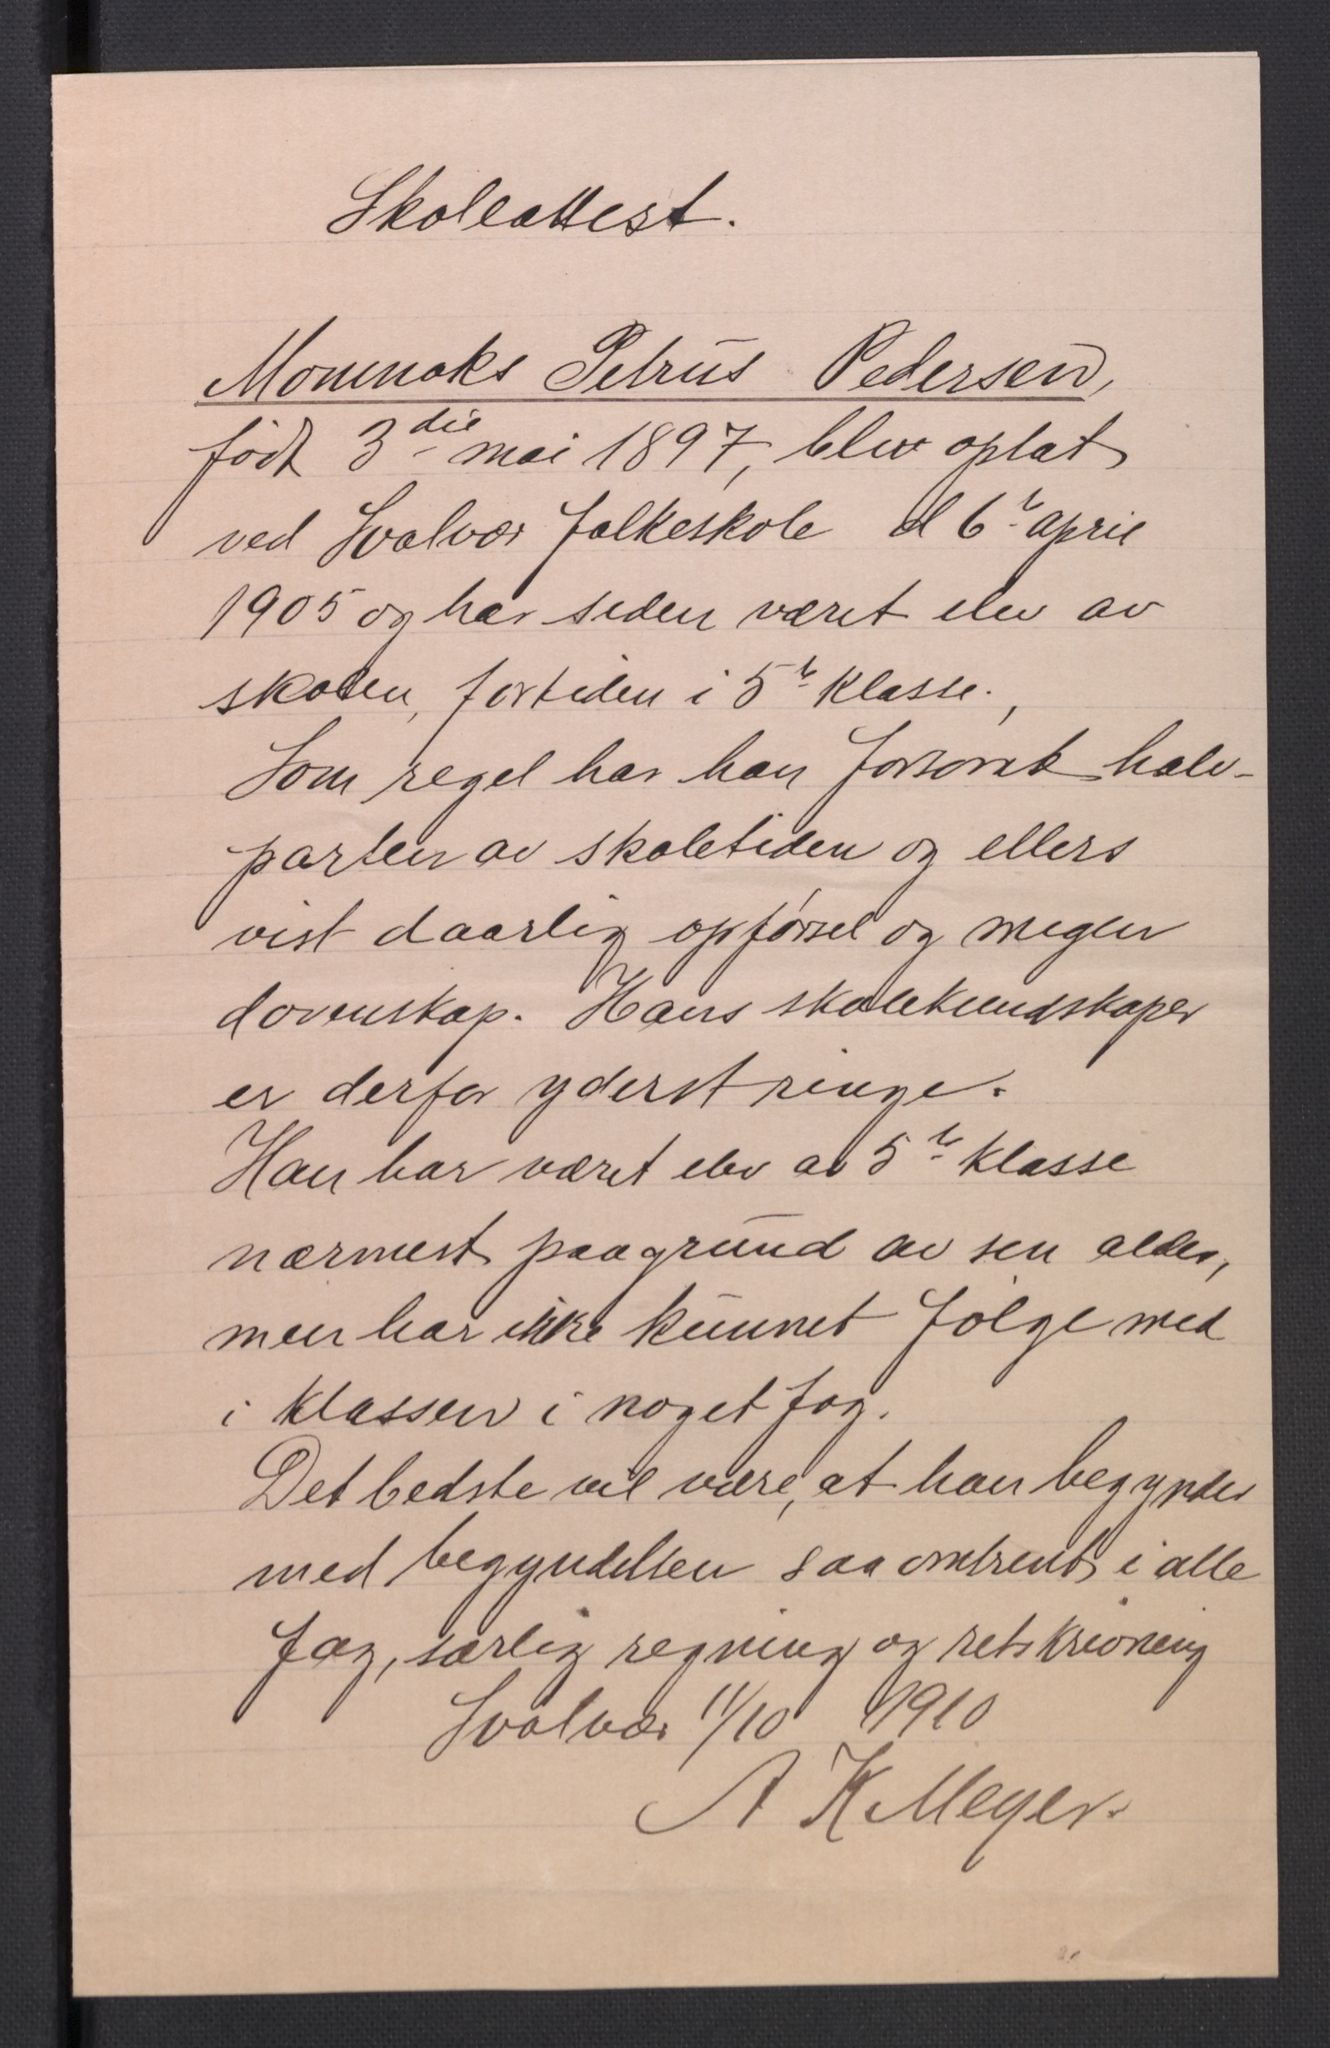 Skoleattest.
Mommoks Petrus Pedersen,
født 3die mai 1897, blev optat
ved Svolvær folkeskole d 6te april
1905 og har siden været elev av
skolen, fortiden i 5te klasse.,
Som regel har han forsømt halv-
parten av skoletiden og ellers
vist daarlig opførsel og megen
dovenskap. Hans skolekundskaper
er derfor yderst ringe.
Han har været elev av 5te klasse
nærmest paagrund av sin alder,
men har ikke kunnet følge med
i klassen i noget fag.
Det bedste vil være, at han begynder
med begyndelsen saa omtrent i alle
fag, særlig regning og retskrivning
Svolvær 11/10 1910
A K Meyer.